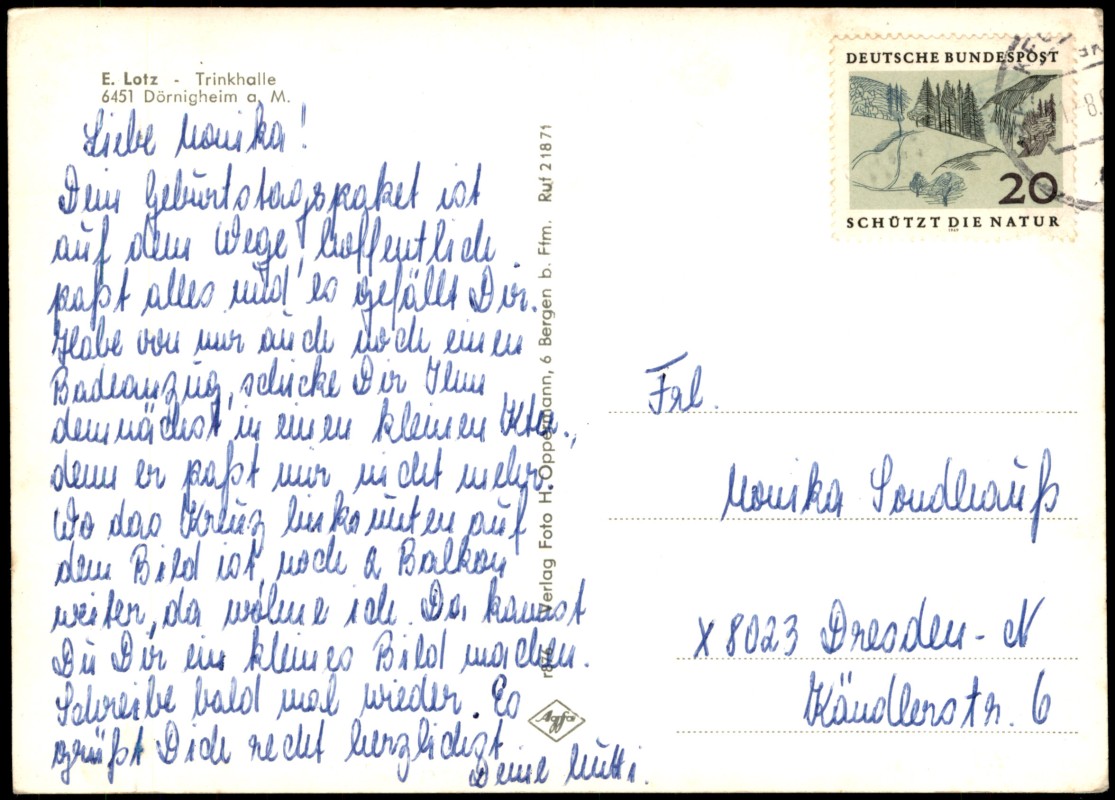 E. Lotz - Trinkhalle
6451 Dörnigheim a. M.
Liebe Monika!
Dein Geburtstagspaket ist
auf dem Wege, hoffentlich
paßt alles und es gefällt Dir.
Habe von mir auch noch einen
Badeanzug, schicke Dir Ihn
demnächst in einen kleinen
denn er paßt mir nicht mehr.
Wo das Kreuz links unten auf
dem Bild ist, noch 2 Balkon
weiter, da wohne ich. Da kannst
Du Dir ein kleines Bild machen.
Schreibe bald mal wieder. Es
grüßt Dich recht herzlichst
Deine Mutti.
r876 Verlag Foto H. Oppermann, 6 Bergen b. Ffm. Ruf 21871
Agfa
DEUTSCHE BUNDESPOST
20
SCHÜTZT DIE NATUR
1969
Frl.
Monika Sondhauß
X 8023 Dresden-N
Kändlerstr. 6